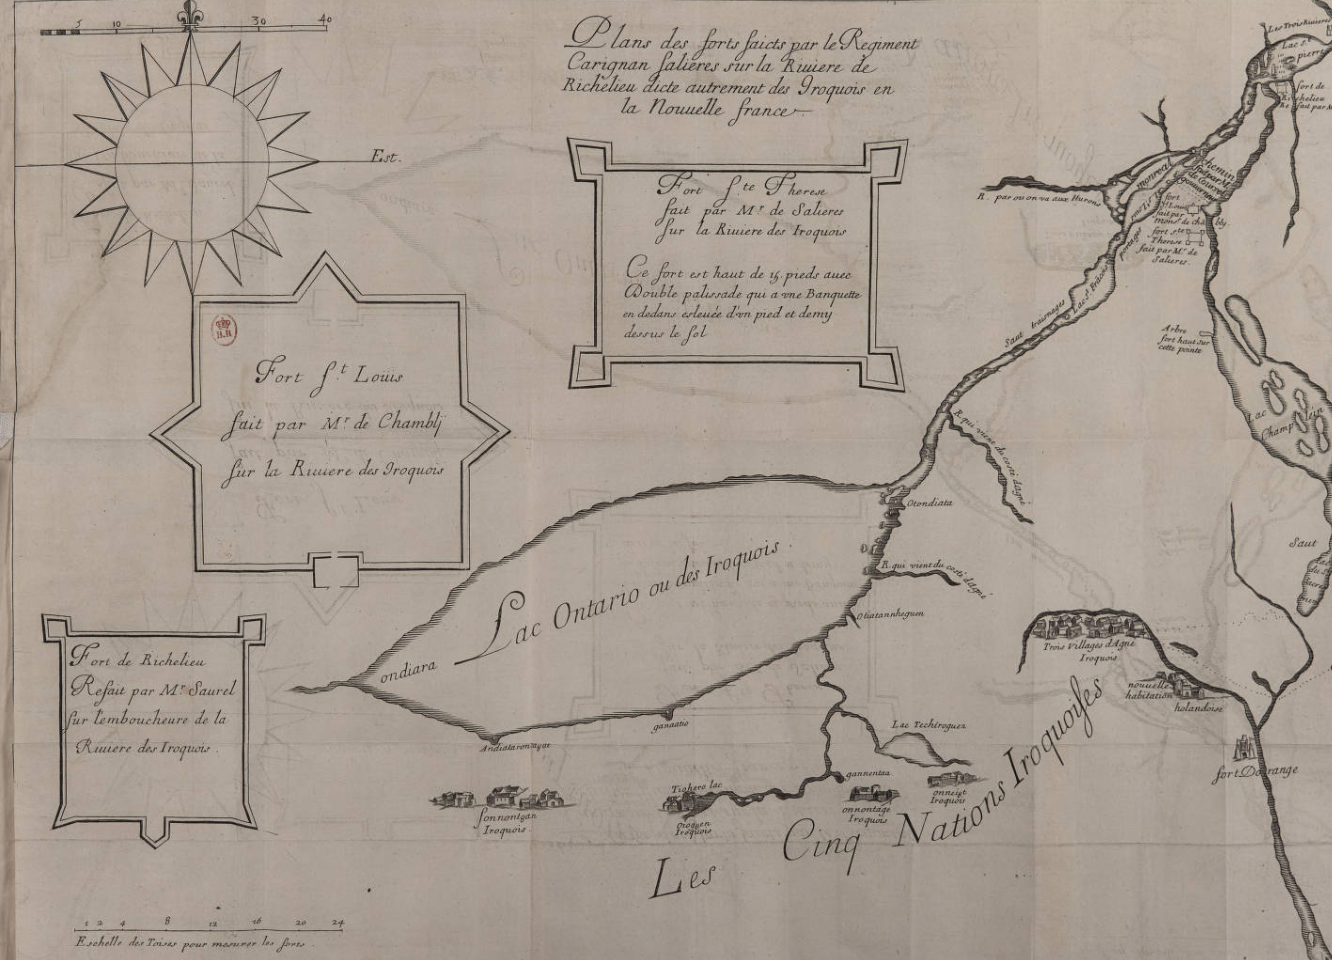 5 10 30 40
Plans des forts faicts par le Regiment
Carignan Salieres sur la Riuiere de
Richelieu dicte autrement des Iroquois en
la Nouuelle france
Est.
Fort S.te Therese
fait par Mr de Salieres
sur la Riuiere des Iroquois
Ce fort est haut de 15. pieds auec
Double palissade qui a vne Banquette
en dedans esleuée d'vn pied et demy
dessus le sol
Fort S.t Loüis
fait par Mr de Chamblj
sur la Riuiere des Iroquois
Fort de Richelieu
Refait par Mr Saurel
sur l'emboucheure de la
Riuiere des Iroquois.
Les Trois Riuieres
Lac St
pierre
fort de
Richelieu
R. par ou on va aux Hurons
monreal
chemin
fort
St Louis
fait par
fort ste
Therese
fait par Mr de
Salieres.
portages
Lac St
Saut
Arbre
fort haut sur
cette pointe
Lac
Champlain
R. qui vient du costé d'agné
Otondiata
R. qui vient du costé d'agné
Otiatannheguen
Lac Ontario ou des Iroquois.
ondiara
ganaatio
Andiatarontayat
Saut
Trois Villages d'Agné
Iroquois
nouuelle
habitation
holandoise
fort Dorange
Lac Techiroguez
Tiohero lac
gannentaa
onneist
Iroquois
onnontagé
Iroquois
oiogoen
Iroquois
sonnontoan
Iroquois.
Les Cinq Nations Iroquoises
1 2 4 8 12 16 20 24
Eschelle des Toises pour mesurer les forts.